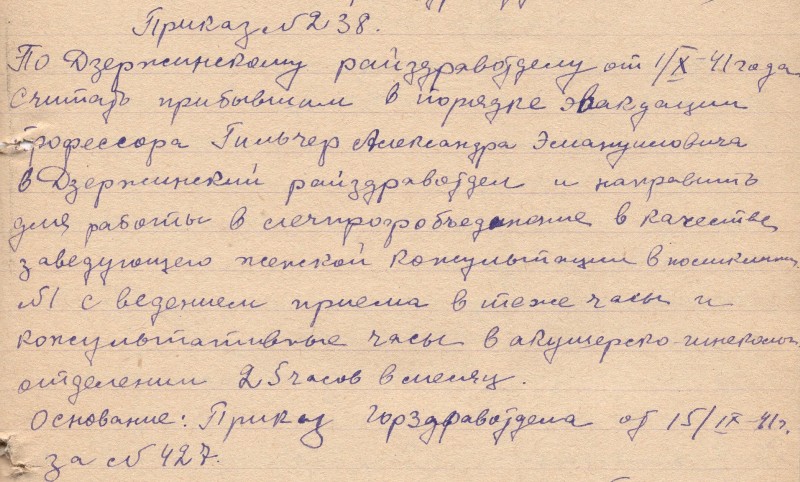 Приказ №238.
По Дзержинскому райздравотделу от 1/IX-41 года.
Считать прибывшим в порядке эвакуации
профессора Гильчер Александра Эмануиловича
в Дзержинский райздравотдел и направить
для работы в лечпрофобъединение в качестве
заведующего женской консультации в поликлиник
№1 с ведением приема в теже часы и
консультативные часы в акушерско-гинеколог.
отделении 25 часов в месяц.
Основание: Приказ Горздравотдела от 15/IX-41г.
за №427.